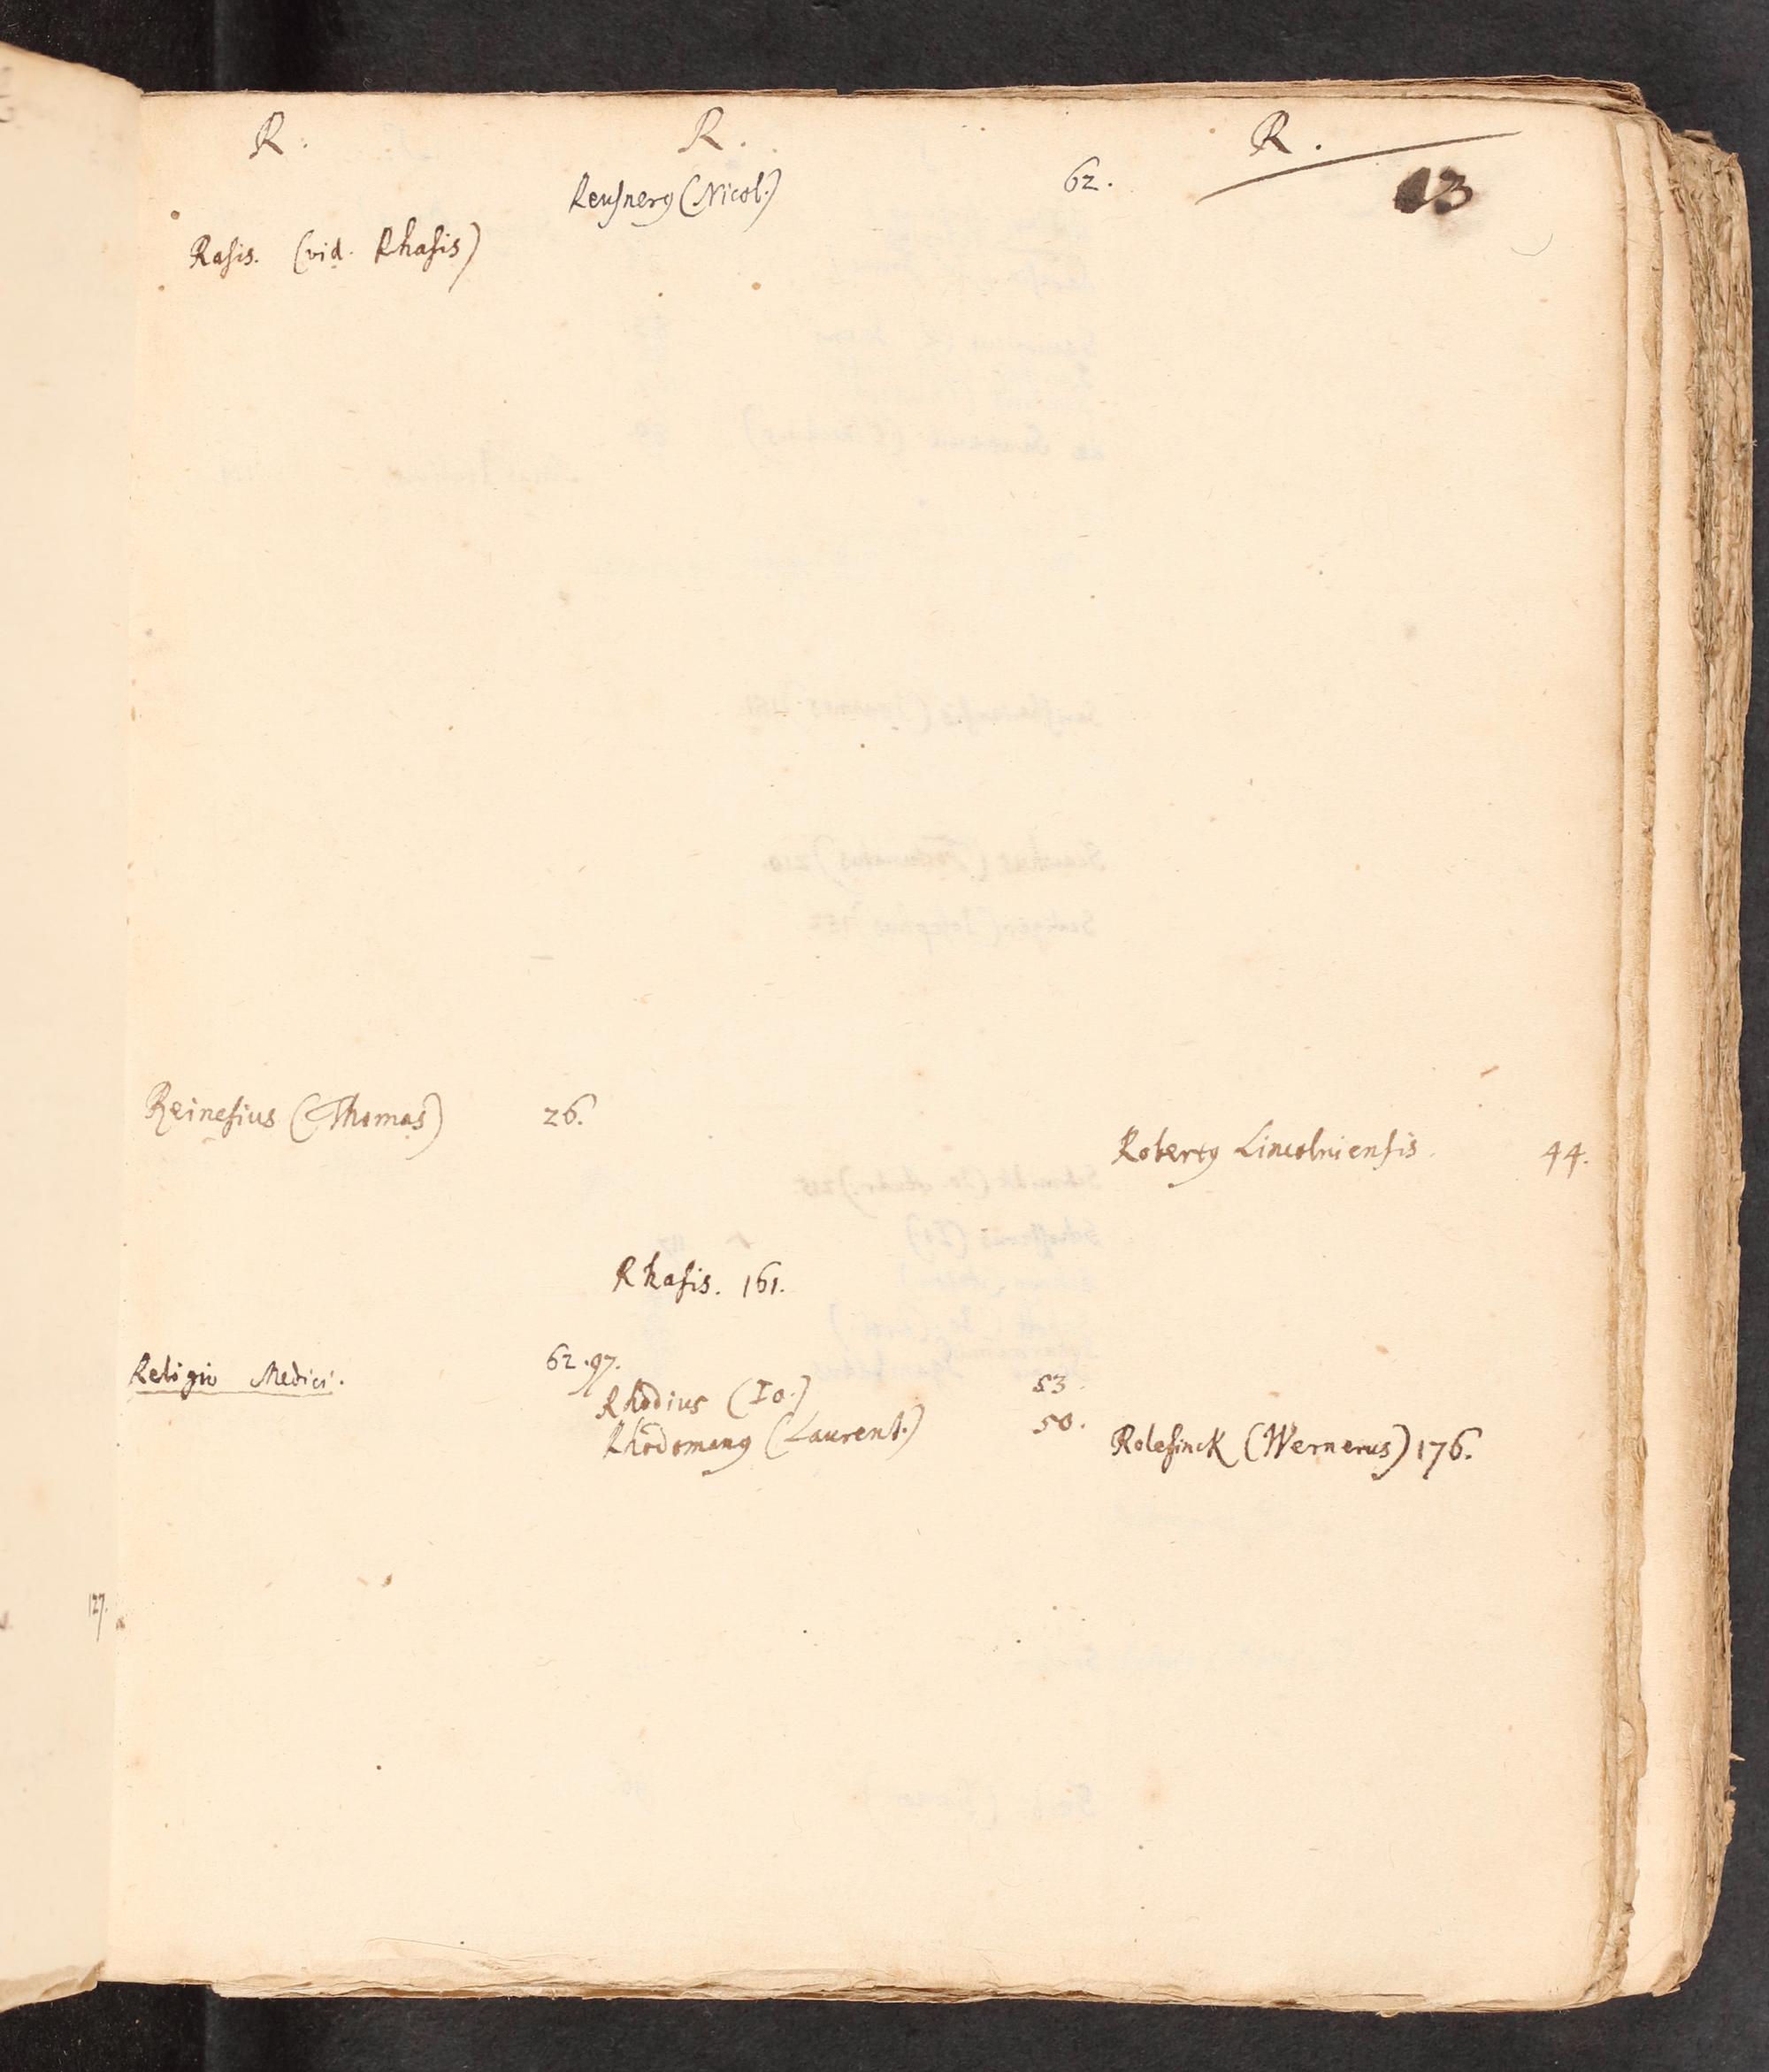 R.
Rasis. (vid. Rhasis)
Reinesius (Thomas) 26.
Religio Medici. 62.97.
R.
Reusnerꝰ (Nicol.) 62.
Rhasis. 161.
Rhodius (Io.) 53.
Rhodomanꝰ (Laurent.) 50.
R.
13
Robertꝰ Lincolniensis. 44.
Rolefinck (Wernerus) 176.
127.